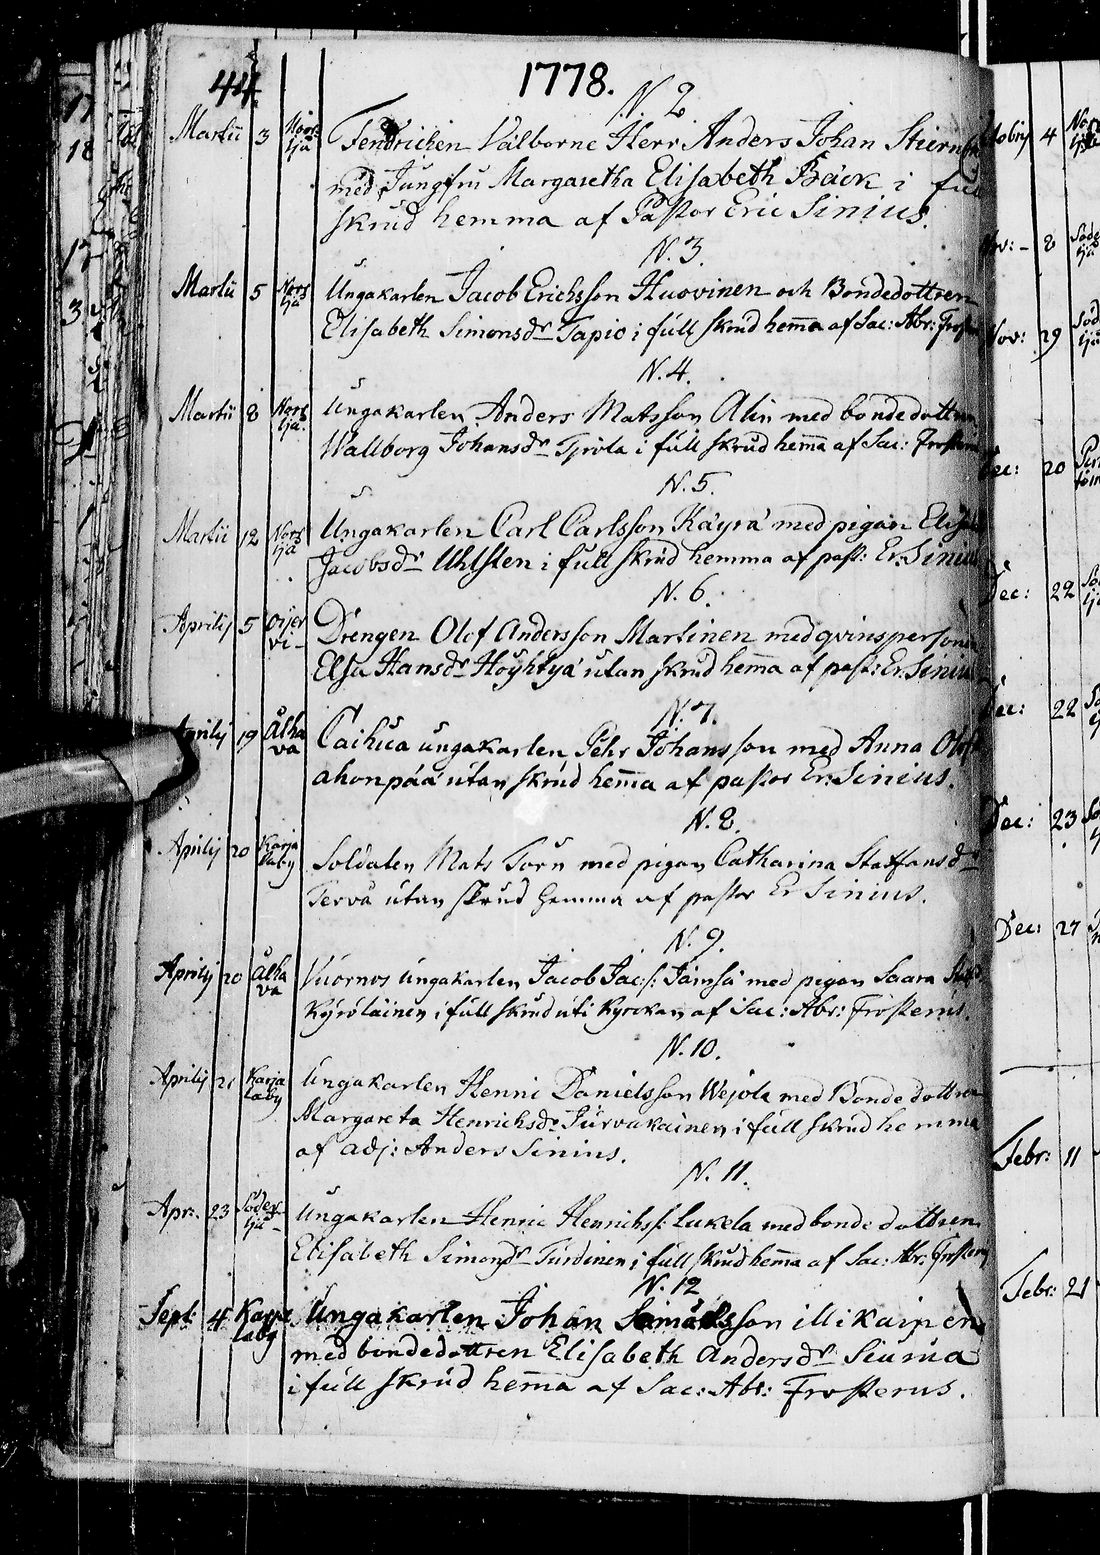 44.
1778.
N. 2
Martii 3 Norr ljä Fendrichen Välborne Herr Anders Johan
med Jungfru Margaretha Elisabeth Bäck i
skrud hemma af Pastor Eric Sinius.
N. 3.
Martii 5 Norr ljä Ungakarlen Jacob Erichsson Huovinen och Bondedottren
Elisabeth Simonsdr Tapio i full skrud hemma af Sac: Abr:
N. 4.
Martii 8 Norr ljä. Ungakarlen Anders Matsson Alin med bondedottren
Wallborg Johansdr i full skrud hemma af Sac:
N. 5.
Martii 12 Norr ljä Ungakarlen Carl Carlsson Käyrä med pigan
Jacobsdr Uhlsten i full skrud hemma af past: Er: Sinius
N. 6.
Aprilij 5 Oijer vi- Drengen Olof Andersson Martinen med qvinspersonen
Elsa Hansdr Höyhtyä utan skrud hemma af past: Er: Sinius
N. 7.
Aprilij 19 Alha va Caihua ungakarlen Pehr Johansson med Anna
ahonpää utan skrud hemma af pastor Er: Sinius.
N. 8.
Aprilij 20 Karja laby Soldaten Mats Törn med pigan Catharina Staffansdr
Terva utan skrud hemma af pastor Er Sinius.
N. 9.
Aprilij 20 Alha va Vuornos ungakarlen Jacob Jac:s: Jämsä med pigan Saara
Kyröläinen i full skrud uti Kyrckan af Sac: Abr: Frosterus.
N. 10.
Aprilij 21 Karja laby Ungakarlen Henric Danielsson Wejola med Bonde dottren
Margareta Henrichsdr Turvakainen i full skrud hemma
af adj: Anders Sinius.
N. 11.
Apr: 23 Söder ljä- Ungakarlen Henric Henrichss: Lukela med bonde dottren
Elisabeth Simonsdr Turdinen i full skrud hemma af Sac: Abr: Frosterus
N. 12
Sept: 4 Karja laby Ungakarlen Johan Samuelsson illikainen
med bondedottren Elisabeth Andersdr Siuruá
i full skrud hemma af Sac: Abr: Frosterus.
4
Nov: - 8
Nov: 29
Dec: 20
Dec: 22
Dec: 22
Dec: 23
Dec: 27
Febr: 11
Febr: 21